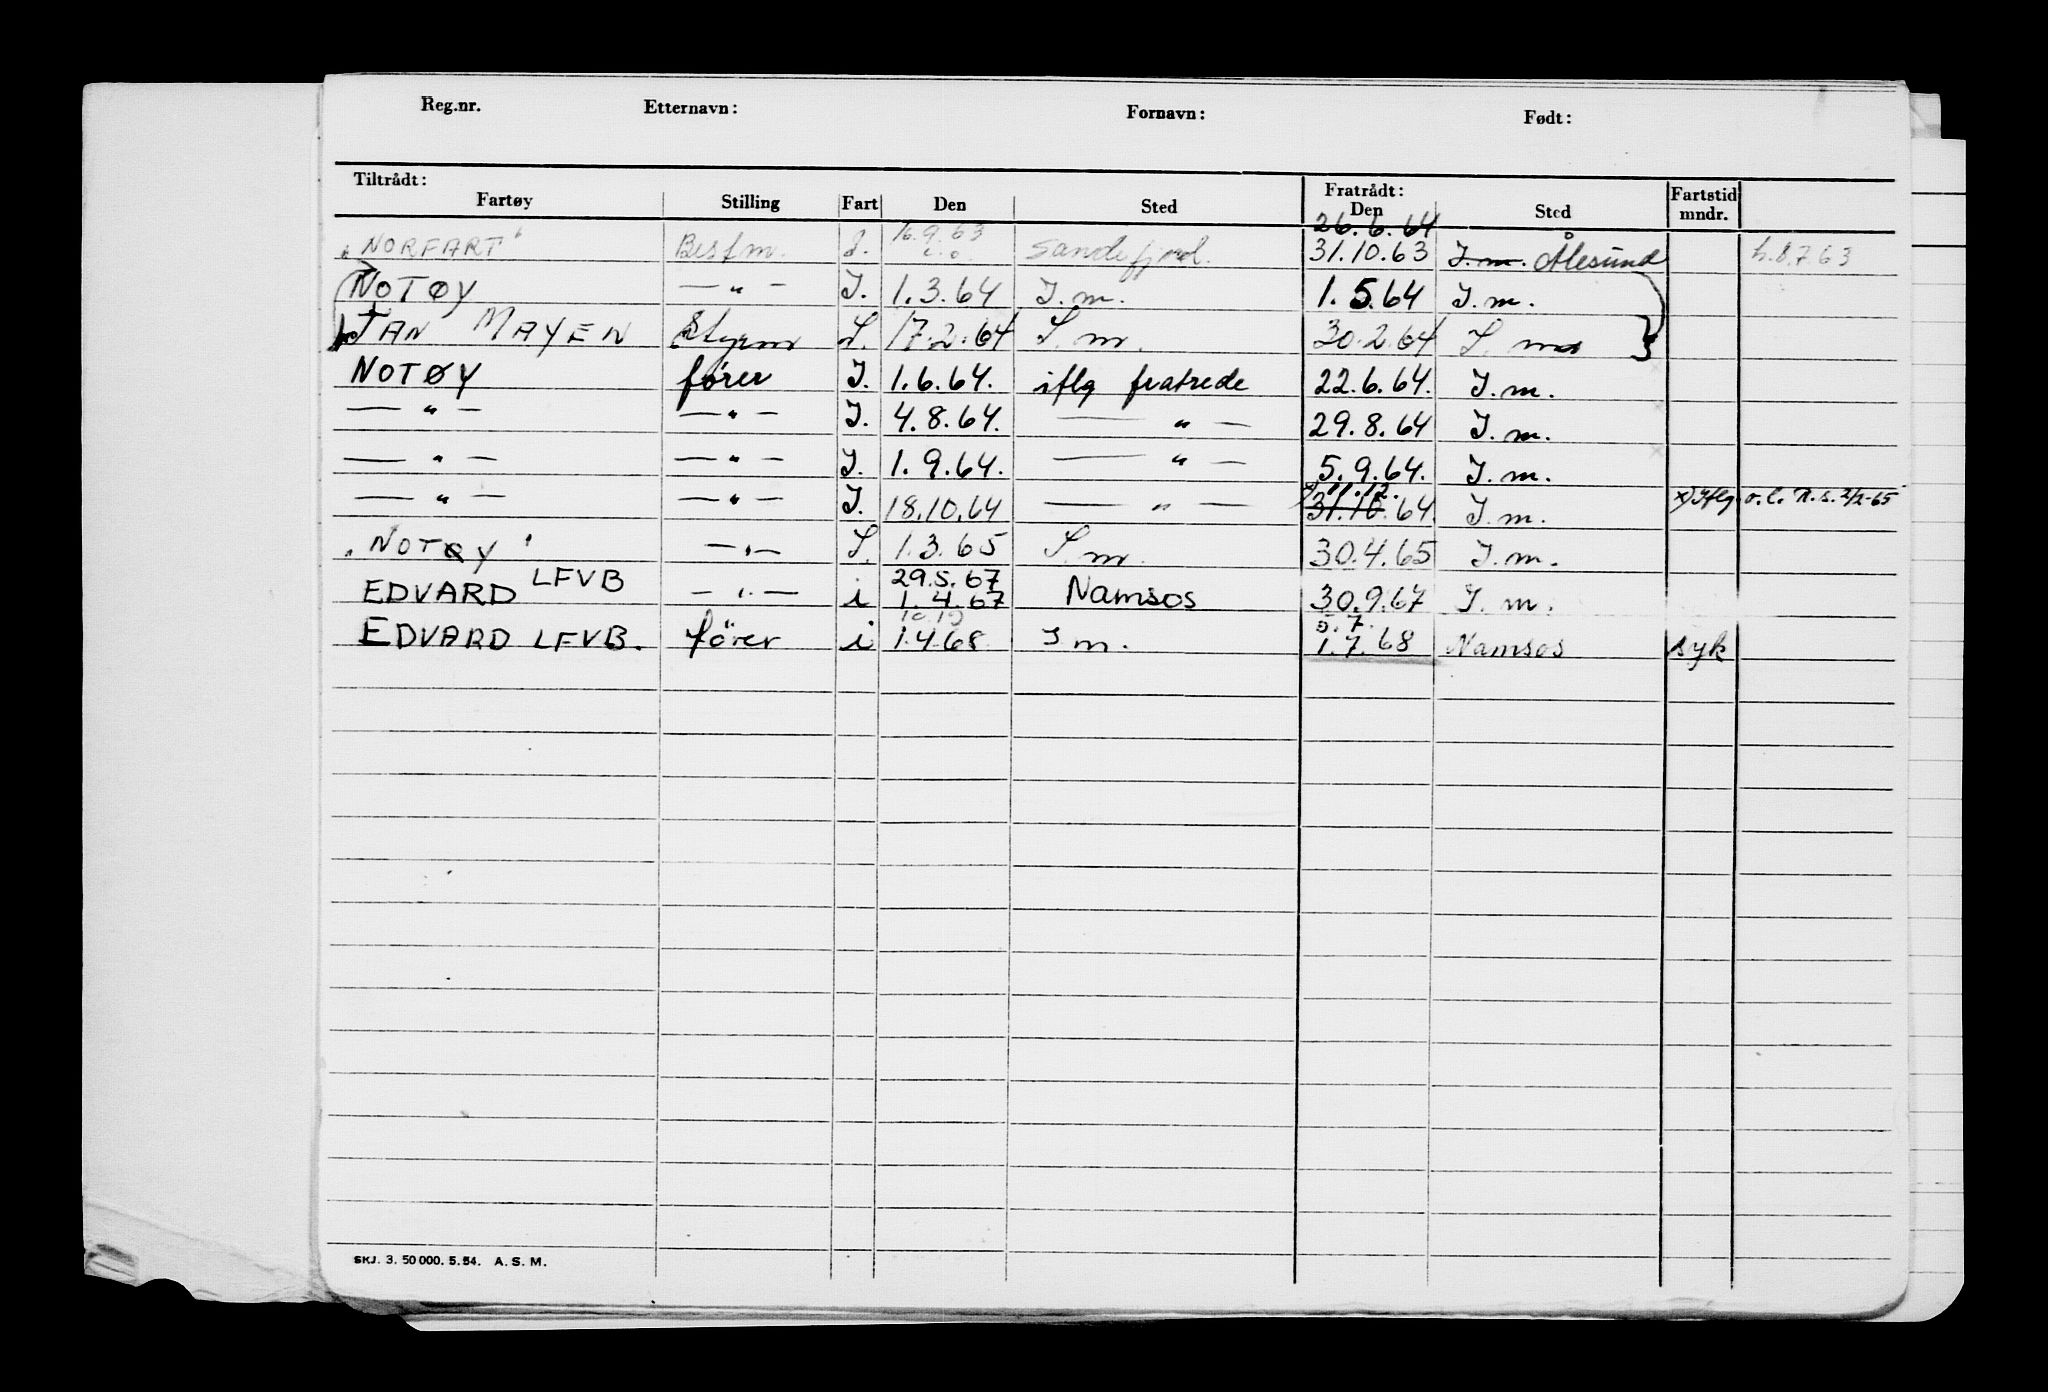 Reg.nr. Etternavn: Fornavn: Født:
Tiltrådt: Fratrådt: Fartstid
Fartøy Stilling Fart Den Sted Den Sted mndr.
16.9.63 26.6.64
"NORFART" Bestm. Sandefjord. 31.10.63 I.m. Ålesund h.8.7.63
NOTØY — " — I. 1.3.64 I.m. 1.5.64 I.m.
JAN MAYEN Styrm 17.2.64 I.m. 30.2.64 I.
NOTØY fører I. 1.6.64. iflg fratrede 22.6.64. I.m.
— " — — " — I. 4.8.64. — " — 29.8.64 I.m.
— " — — " — I. 1.9.64. — " — 5.9.64. I.m.
11.12.
— " — — " — I. 18.10.64 — " — 31.10.64. I.m. x) Iflg. o.l. R.s. 2/2-65
"NOTØY" — " — I. 1.3.65 I.m. 30.4.65 I.m.
29.5.67
EDVARD LFVB — " — i 1.4.67 Namsos 30.9.67 I.m.
5.7.
EDVARD LFVB. fører i 1.4.68 I m. 1.7.68 Namsos syk
SKJ. 3. 50 000. 5. 54. A. S. M.